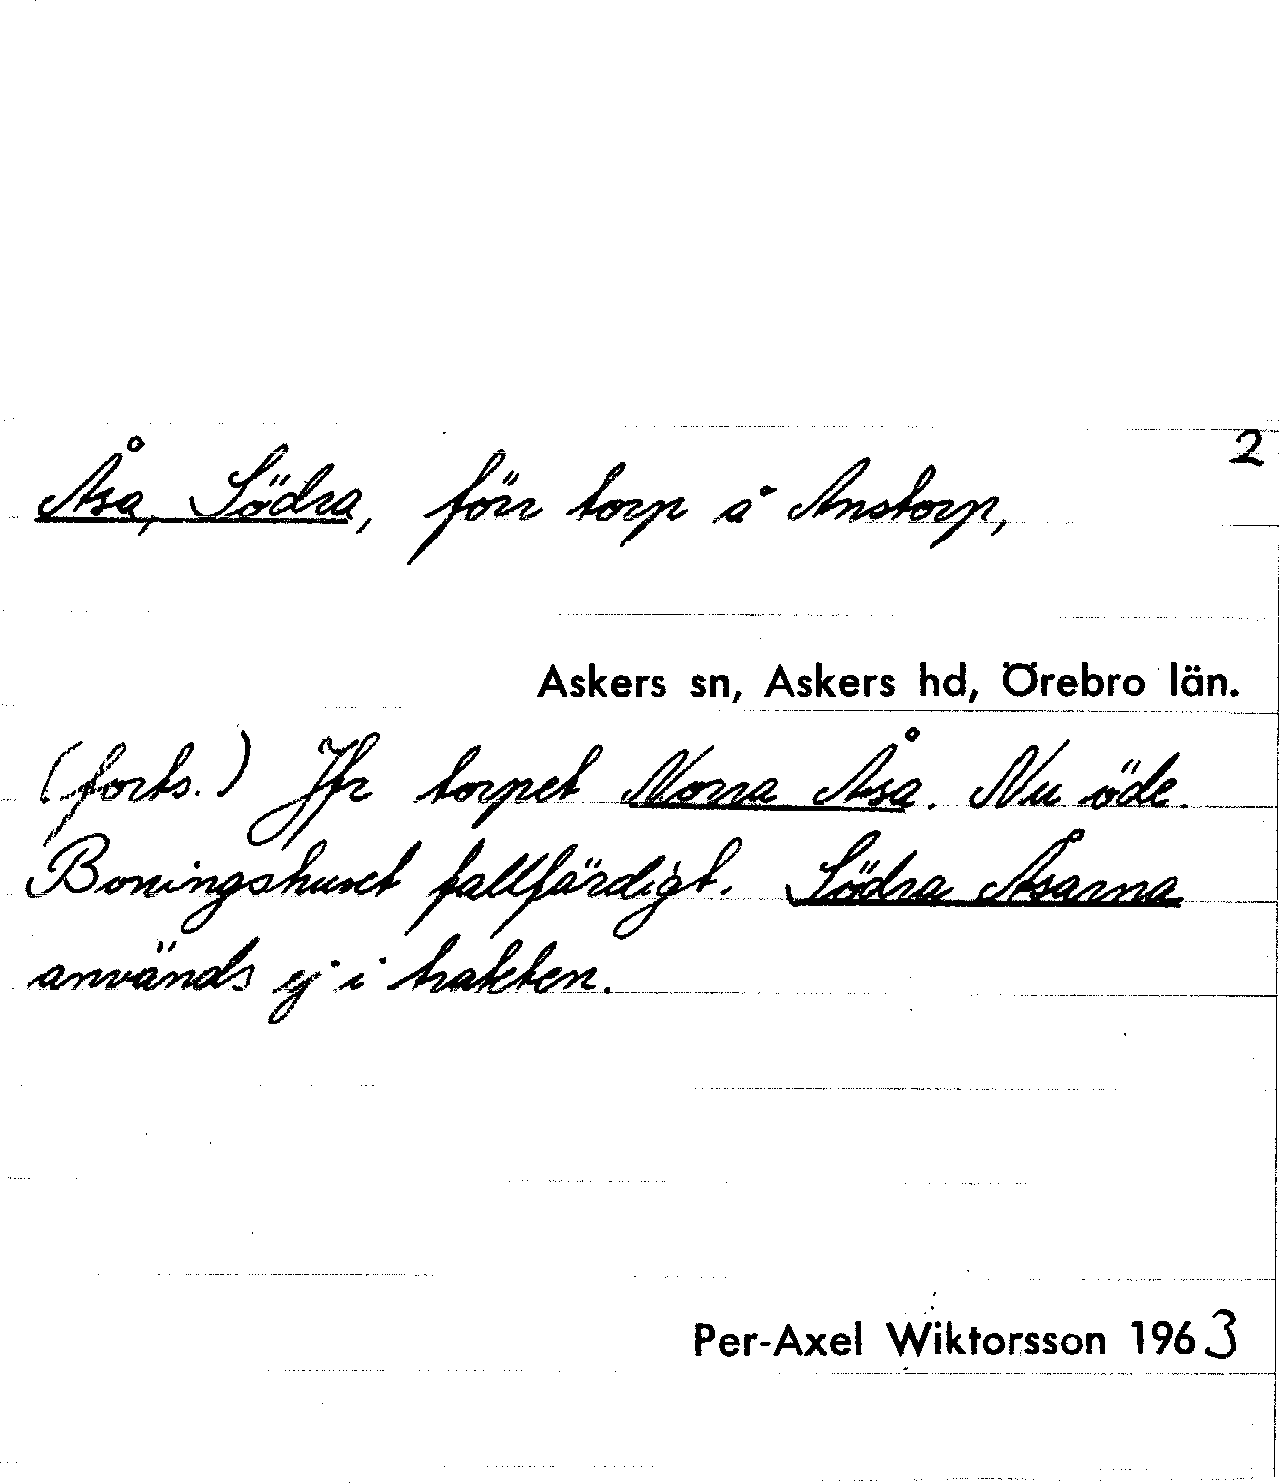 2
Åsa, Södra, förr torp å Anstorp,
Askers sn, Askers hd, Örebro län.
(forts.) Jfr torpet Norra Åsa. Nu öde.
Boningshuset fallfärdigt. Södra Åsarna
används ej i trakten.
Per-Axel Wiktorsson 1963